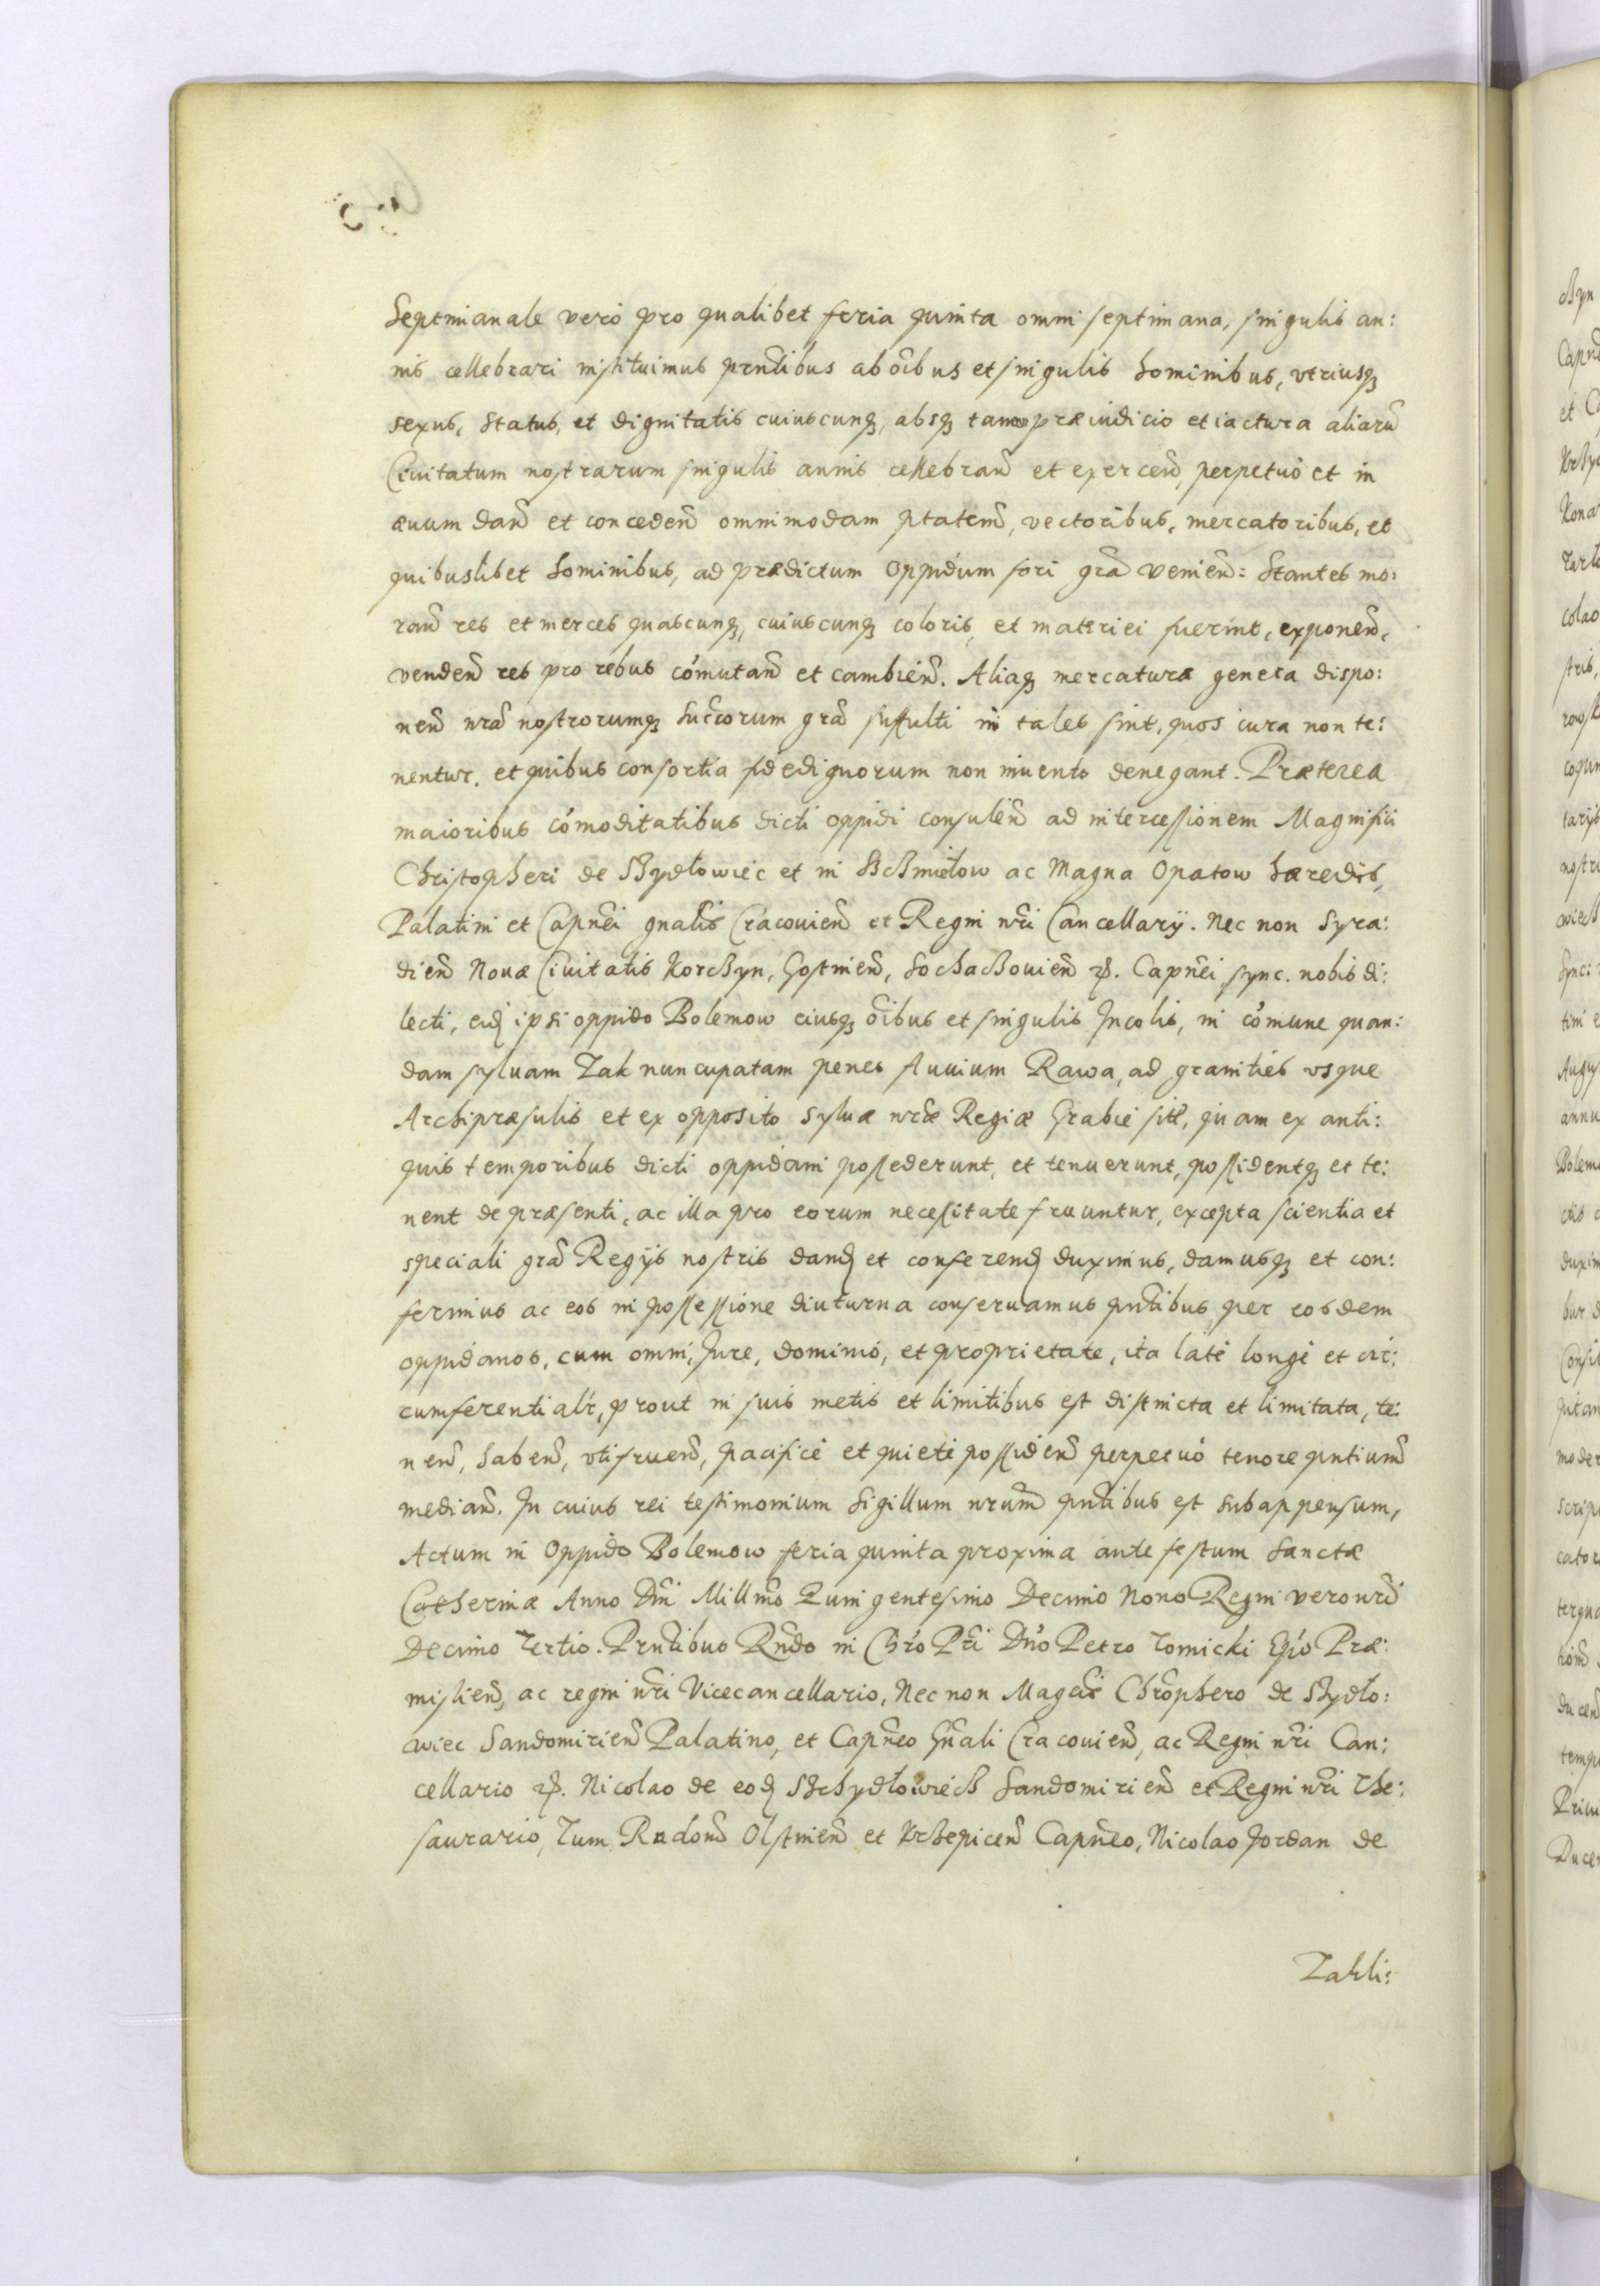 Septimanale verò pro qualibet feria quinta omni septimana, singulis an:
nis cellebrari instituimus prñtibus ab oĩbus et singulis hominibus, vtriusq
sexus, status, et dignitatis cuiuscunq, absq tamen præiudicio et iactura aliarũ
Ciuitatum nostrarum singulis annis cellebrañ et exerceñ, perpetuò et in
æuum dañ et concedeñ omnimodam ptatem, vectoribus, mercatoribus, et
quibuslibet hominibus, ad prædictum oppidum fori grã venieñ: Stantes mo:
rañ res et merces quascunq, cuiuscunq coloris, et materiei fuerint, exponeñ,
vendeñ res pro rebus cõmutañ et cambieñ. Aliaq mercaturæ genera dispo:
neñ nrã nostrorumq succorum grã suffulti ni tales sint, quos iura non te:
nentur, et quibus consortia fidedignorum non inuento denegant. Præterea
maioribus cõmoditatibus dicti oppidi consuleñ ad intercessionem Magnifici
Christopheri de Shydłowiec et in Hchmiełow ac Magna Opatow hæredis,
Palatini et Capnẽi gnalis Cracouieñ et Regni nrĩ Cancellarij. Nec non Syra:
dieñ Nouæ Ciuitatis Korchyn, Gostnieñ, Sochachouieñ Capnẽi, sync. nobis di:
lecti, eid ipsi oppido Bolemow eiusq oĩbus et singulis Incolis, in cõmune quan:
dam syluam Zak nuncupatam penes fluuium Rawa, ad granities vsque
Archipræsulis et ex opposito syluæ nrãe Regiæ Grabie sitẽ, quam ex anti:
quis temporibus dicti oppidani possederunt, et tenuerunt, possidentq et te:
nent de præsenti, ac illa pro eorum necessitate fruuntur, excepta scientia et
speciali grã Regijs nostris dand et conferend duximus, damusq et con:
ferimus ac eos in possessione diuturna conseruamus pñtibus per eosdem
oppidanos, cum omni, Jure, dominio, et proprietate, ita latè longè et cir:
cumferentialr, prout in suis metis et limitibus est distincta et limitata, te:
neñ, habeñ, vtifrueñ, pacificè et quietè possideñ perpetuò tenore pntium
mediañ. In cuius rei testimonium Sigillum nrum pñtibus est subappensum,
Actum in Oppido Bolemow feria quinta proxima ante festum Sanctæ
Catherinæ Anno Dñi Millmo Quingentesimo Decimo Nono Regni vero nrĩ
Decimo Tertio. Prñtibus Rñdo in Chro Prĩ Dño Petro Tomicki Epo Præ:
mislieñ, ac regni nrĩ Vicecancellario, Nec non Magcis Chrõphero de Shydło:
wiec Sandomirieñ Palatino, et Capnẽo Gñali Cracouieñ, ac Regni nrĩ Can:
cellario Nicolao de eod Shchydłowiech Sandomirieñ et Regni nrĩ The:
saurario, Tum Radoñ Olstnieñ et Krhepiceñ Capnẽo, Nicolao Jordan de
Zakli: